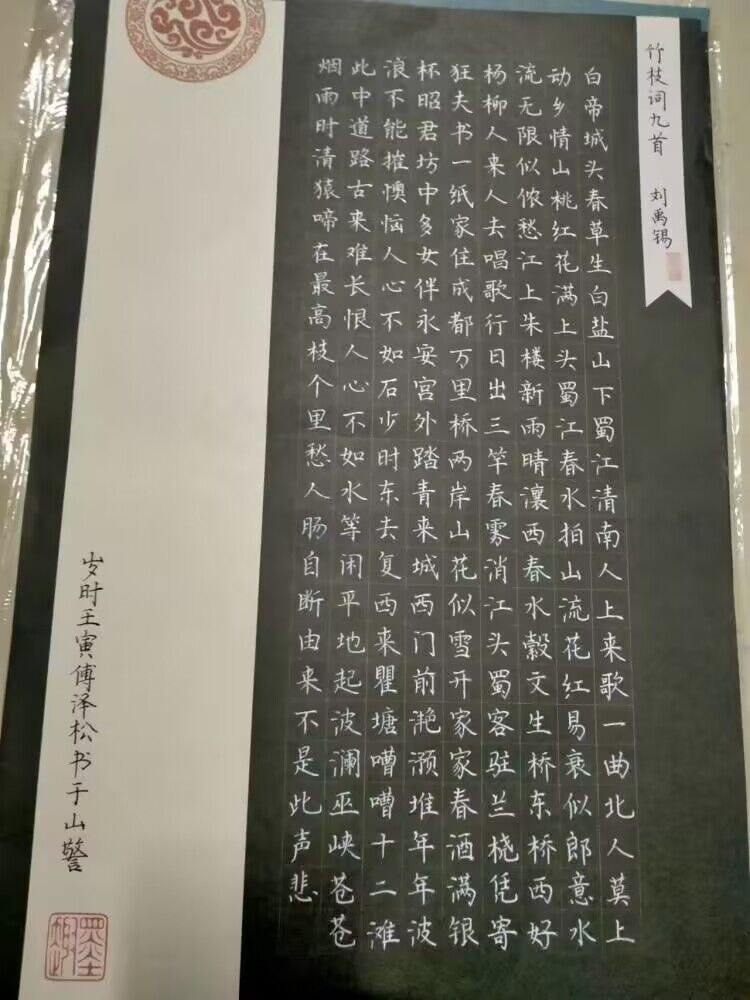 竹枝词九首 刘禹锡
白帝城头春草生白盐山下蜀江清南人上来歌一曲北人莫上
动乡情山桃红花满上头蜀江春水拍山流花红易衰似郎意水
流无限似侬愁江上朱楼新雨晴瀼西春水縠文生桥东桥西好
杨柳人来人去唱歌行日出三竿春雾消江头蜀客驻兰桡凭寄
狂夫书一纸家住成都万里桥两岸山花似雪开家家春酒满银
杯昭君坊中多女伴永安宫外踏青来城西门前滟滪堆年年波
浪不能摧懊恼人心不如石少时东去复西来瞿塘嘈嘈十二滩
此中道路古来难长恨人心不如水等闲平地起波澜巫峡苍苍
烟雨时清猿啼在最高枝个里愁人肠自断由来不是此声悲
岁时壬寅傅泽松书于山警